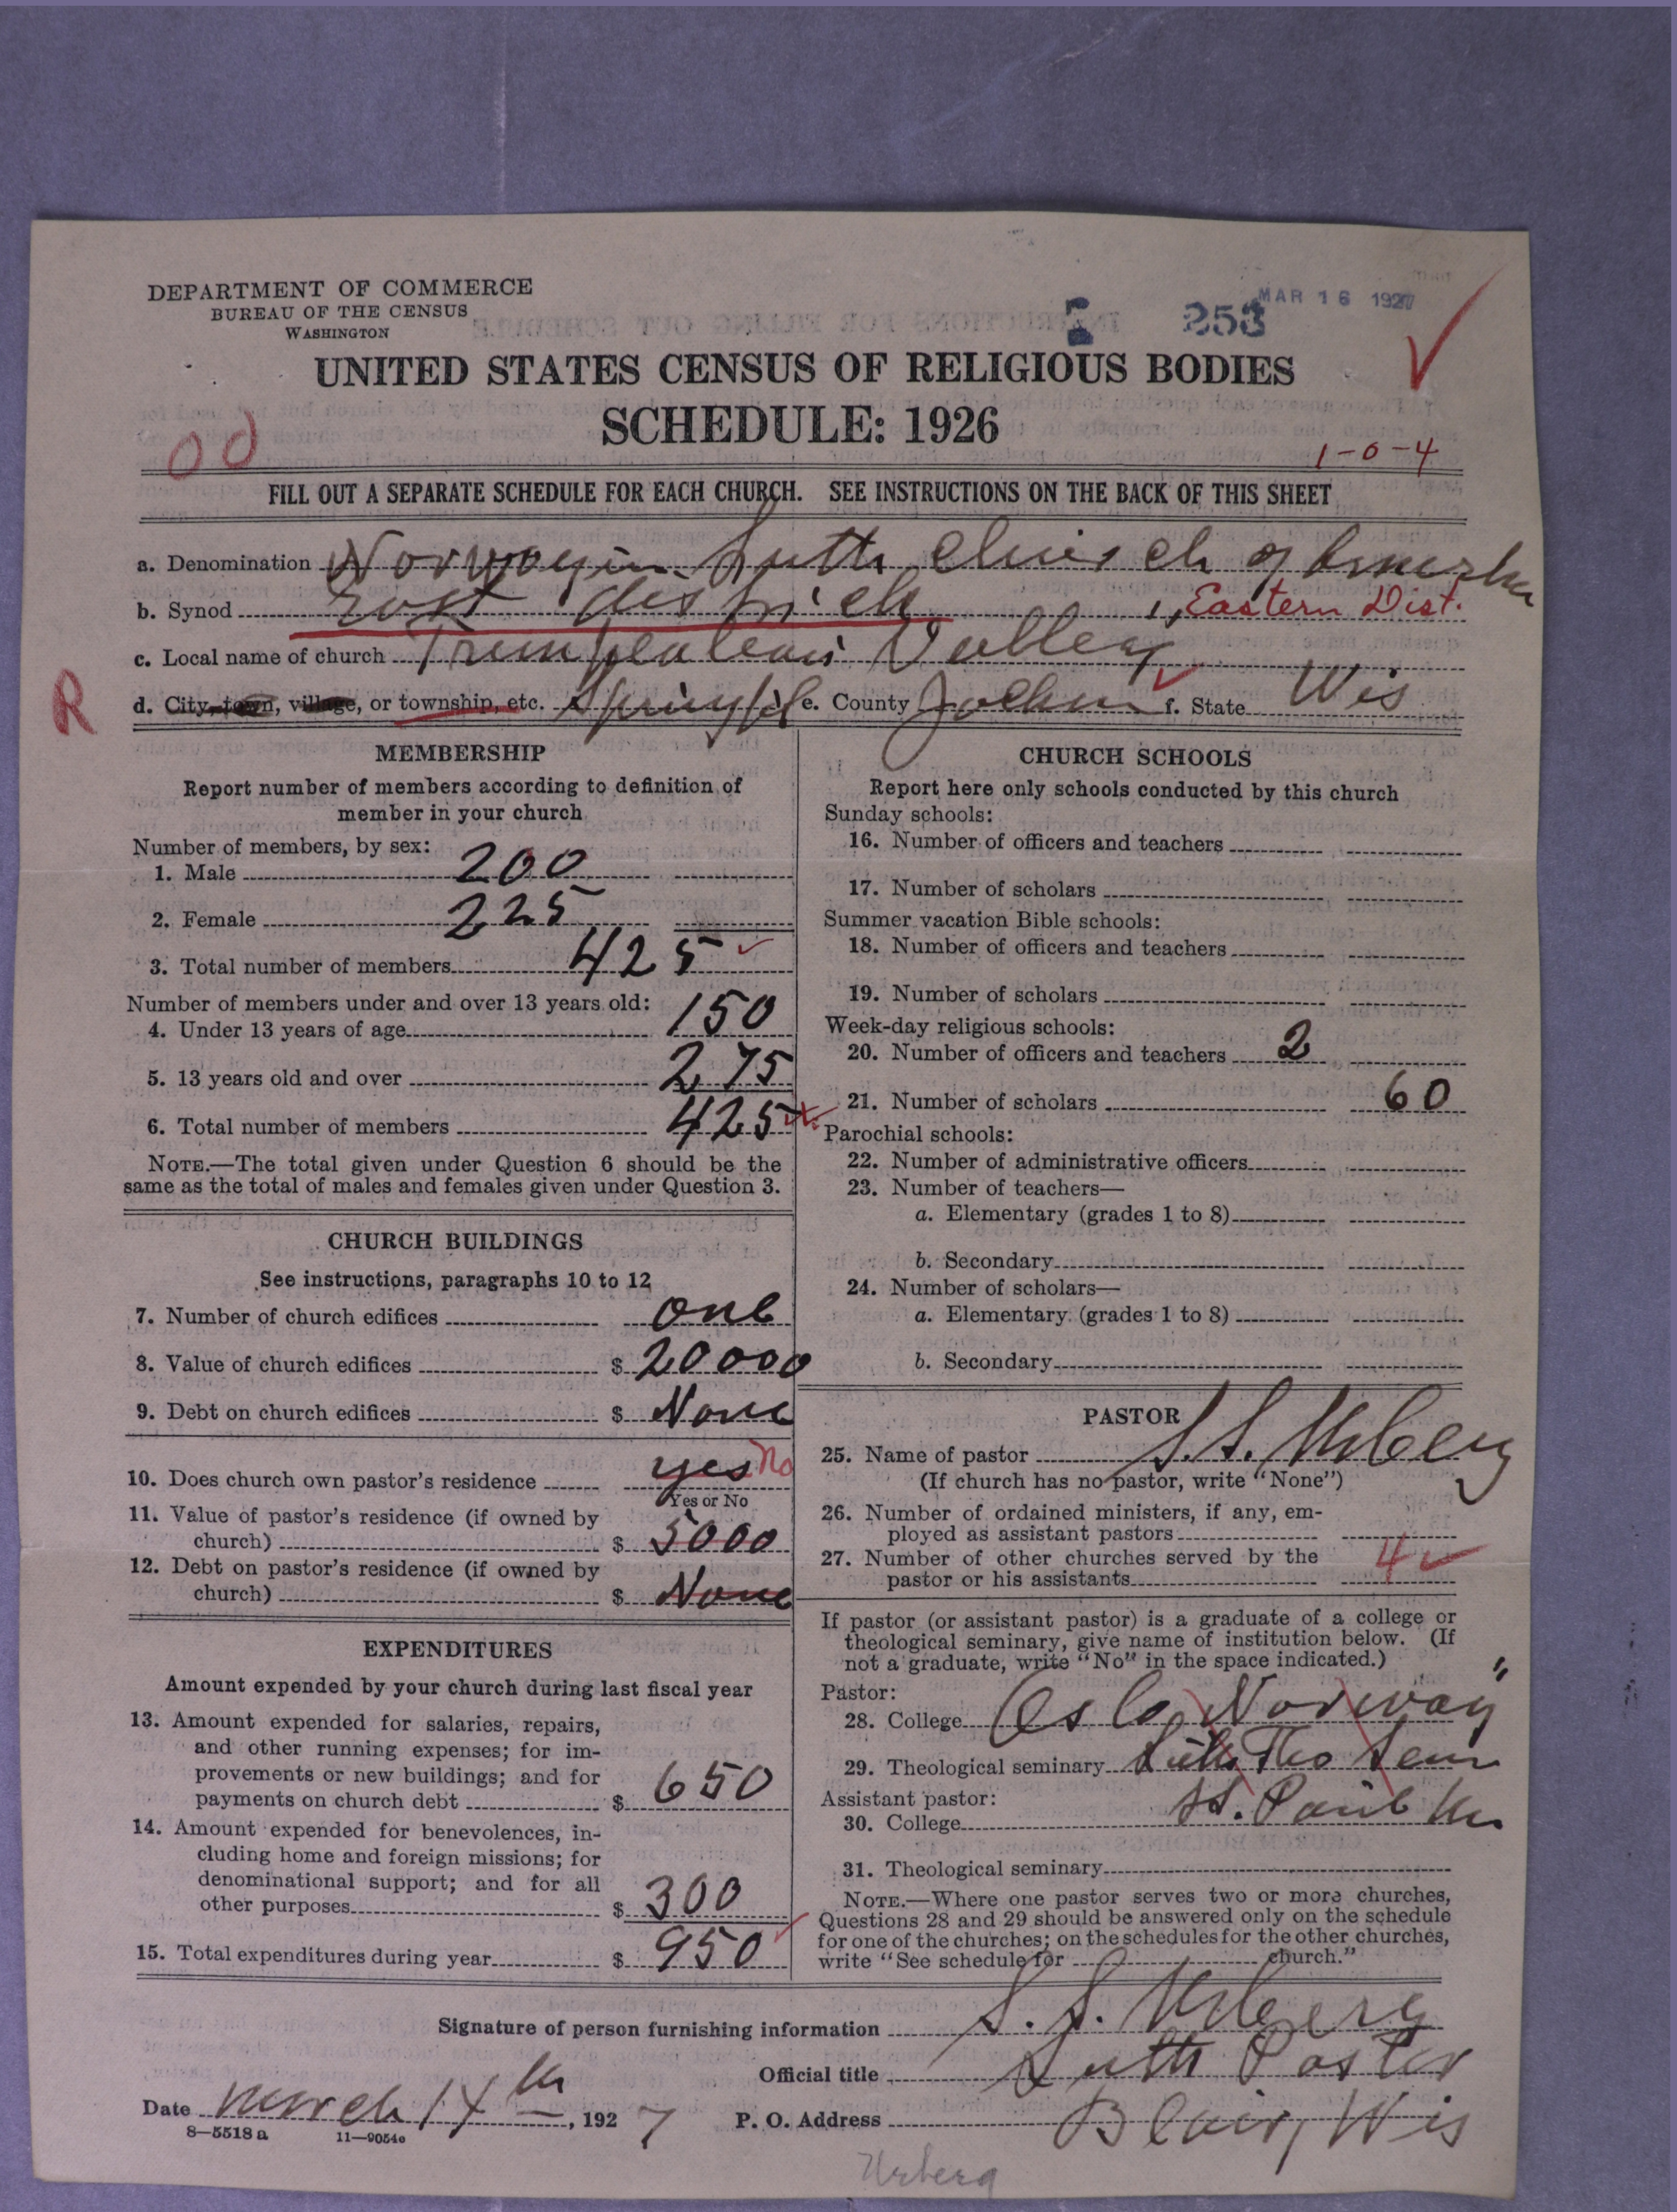 DEPARTMENT OF COMMERCE
BUREAU OF THE CENSUS
WASHINGTON
253
MAR 16 1927
UNITED STATES CENSUS OF RELIGIOUS BODIES
SCHEDULE: 1926
00
1-0-4
FILL OUT A SEPARATE SCHEDULE FOR EACH CHURCH. SEE INSTRUCTIONS ON THE BACK OF THIS SHEET
a. Denomination Norwegin Luth Church of America
b. Synod East districh, Eastern Dist.
c. Local name of church Trempealeau Valley
R
d. City, town, village, or township, etc. Springfd e. County Jackson f. State Wis
MEMBERSHIP
Report number of members according to definition of
member in your church
Number of members, by sex:
1. Male 200
2. Female 225
3. Total number of members 425
Number of members under and over 13 years old:
4. Under 13 years of age 150
5. 13 years old and over 275
6. Total number of members 425
NOTE.—The total given under Question 6 should be the
same as the total of males and females given under Question 3.
CHURCH BUILDINGS
See instructions, paragraphs 10 to 12
7. Number of church edifices one
8. Value of church edifices $ 20000
9. Debt on church edifices $ None
10. Does church own pastor's residence yes No
Yes or No
11. Value of pastor's residence (if owned by
church) $ 5000
12. Debt on pastor's residence (if owned by
church) $ None
EXPENDITURES
Amount expended by your church during last fiscal year
13. Amount expended for salaries, repairs,
and other running expenses; for im-
provements or new buildings; and for
payments on church debt $ 650
14. Amount expended for benevolences, in-
cluding home and foreign missions; for
denominational support; and for all
other purposes $ 300
15. Total expenditures during year $ 950
CHURCH SCHOOLS
Report here only schools conducted by this church
Sunday schools:
16. Number of officers and teachers
17. Number of scholars
Summer vacation Bible schools:
18. Number of officers and teachers
19. Number of scholars
Week-day religious schools:
20. Number of officers and teachers 2
21. Number of scholars 60
Parochial schools:
22. Number of administrative officers
23. Number of teachers—
a. Elementary (grades 1 to 8)
b. Secondary
24. Number of scholars—
a. Elementary (grades 1 to 8)
b. Secondary
PASTOR
25. Name of pastor S. S. Urberg
(If church has no pastor, write "None")
26. Number of ordained ministers, if any, em-
ployed as assistant pastors
27. Number of other churches served by the
pastor or his assistants 4
If pastor (or assistant pastor) is a graduate of a college or
theological seminary, give name of institution below. (If
not a graduate, write "No" in the space indicated.)
Pastor:
28. College Oslo, Norway
29. Theological seminary Luth Theo Sem
Assistant pastor: St. Paul
30. College
31. Theological seminary
NOTE.—Where one pastor serves two or more churches,
Questions 28 and 29 should be answered only on the schedule
for one of the churches; on the schedules for the other churches,
write "See schedule for church."
Signature of person furnishing information S. S. Urberg
Official title Luth Pastor
Date March 14 th, 1927 P. O. Address Blair, Wis
8—5518 a 11—9054a
Urberg